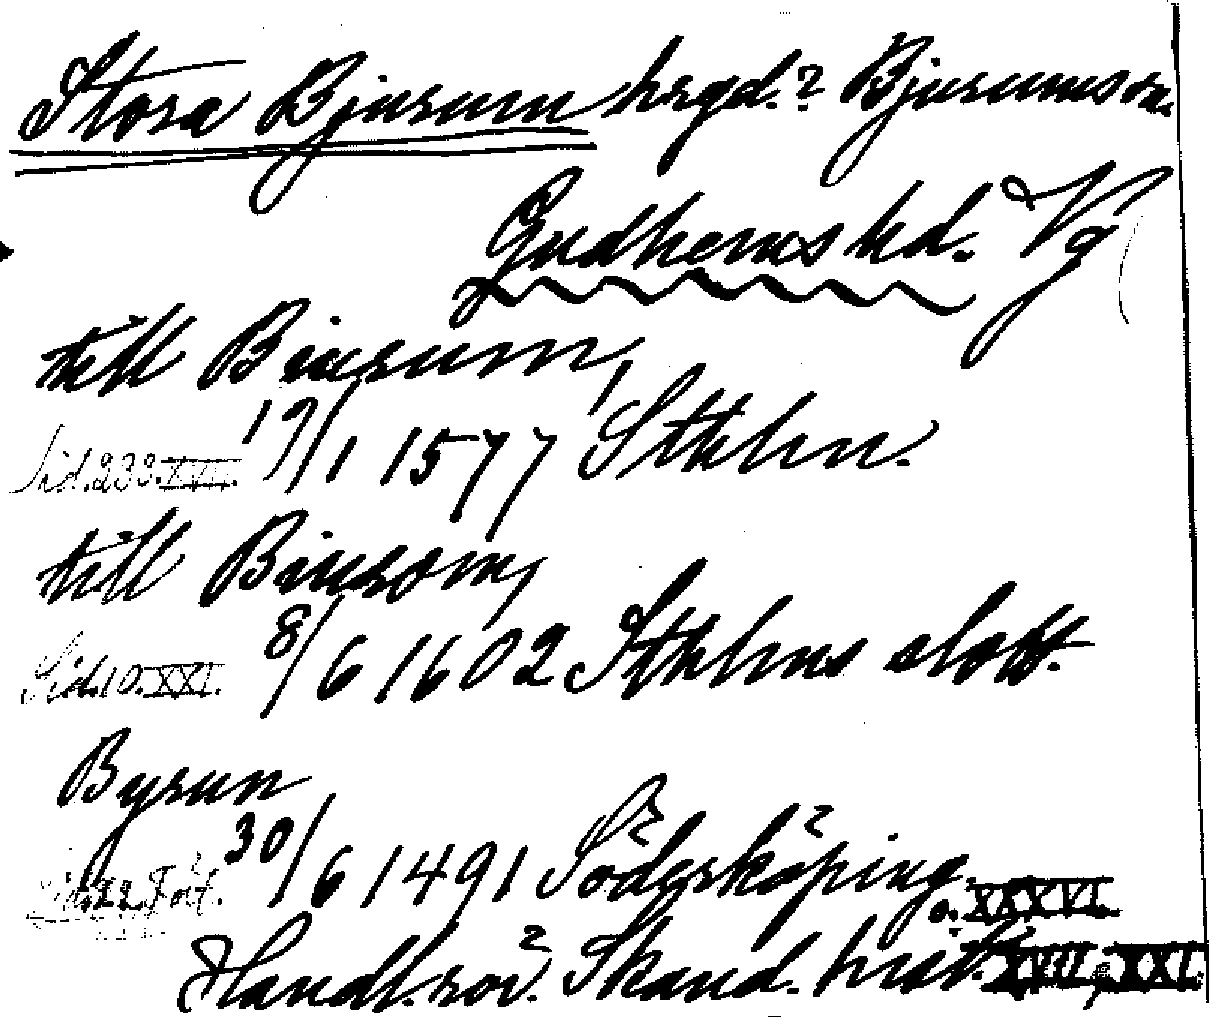 Stora Bjurum hrgd.? Bjurums sn.
Gudhems hd. Vg
till Biurum,
Sid. 233. XVII. 17/1 1577 Sthlm.
till Biurom,
Sid. 10. XXI. 8/6 1602 Sthlms slott.
Byrum
30/6 1491 Söderköping.
Handl. rör. Skand. hist. XVII, XXI. o. XXXVI.